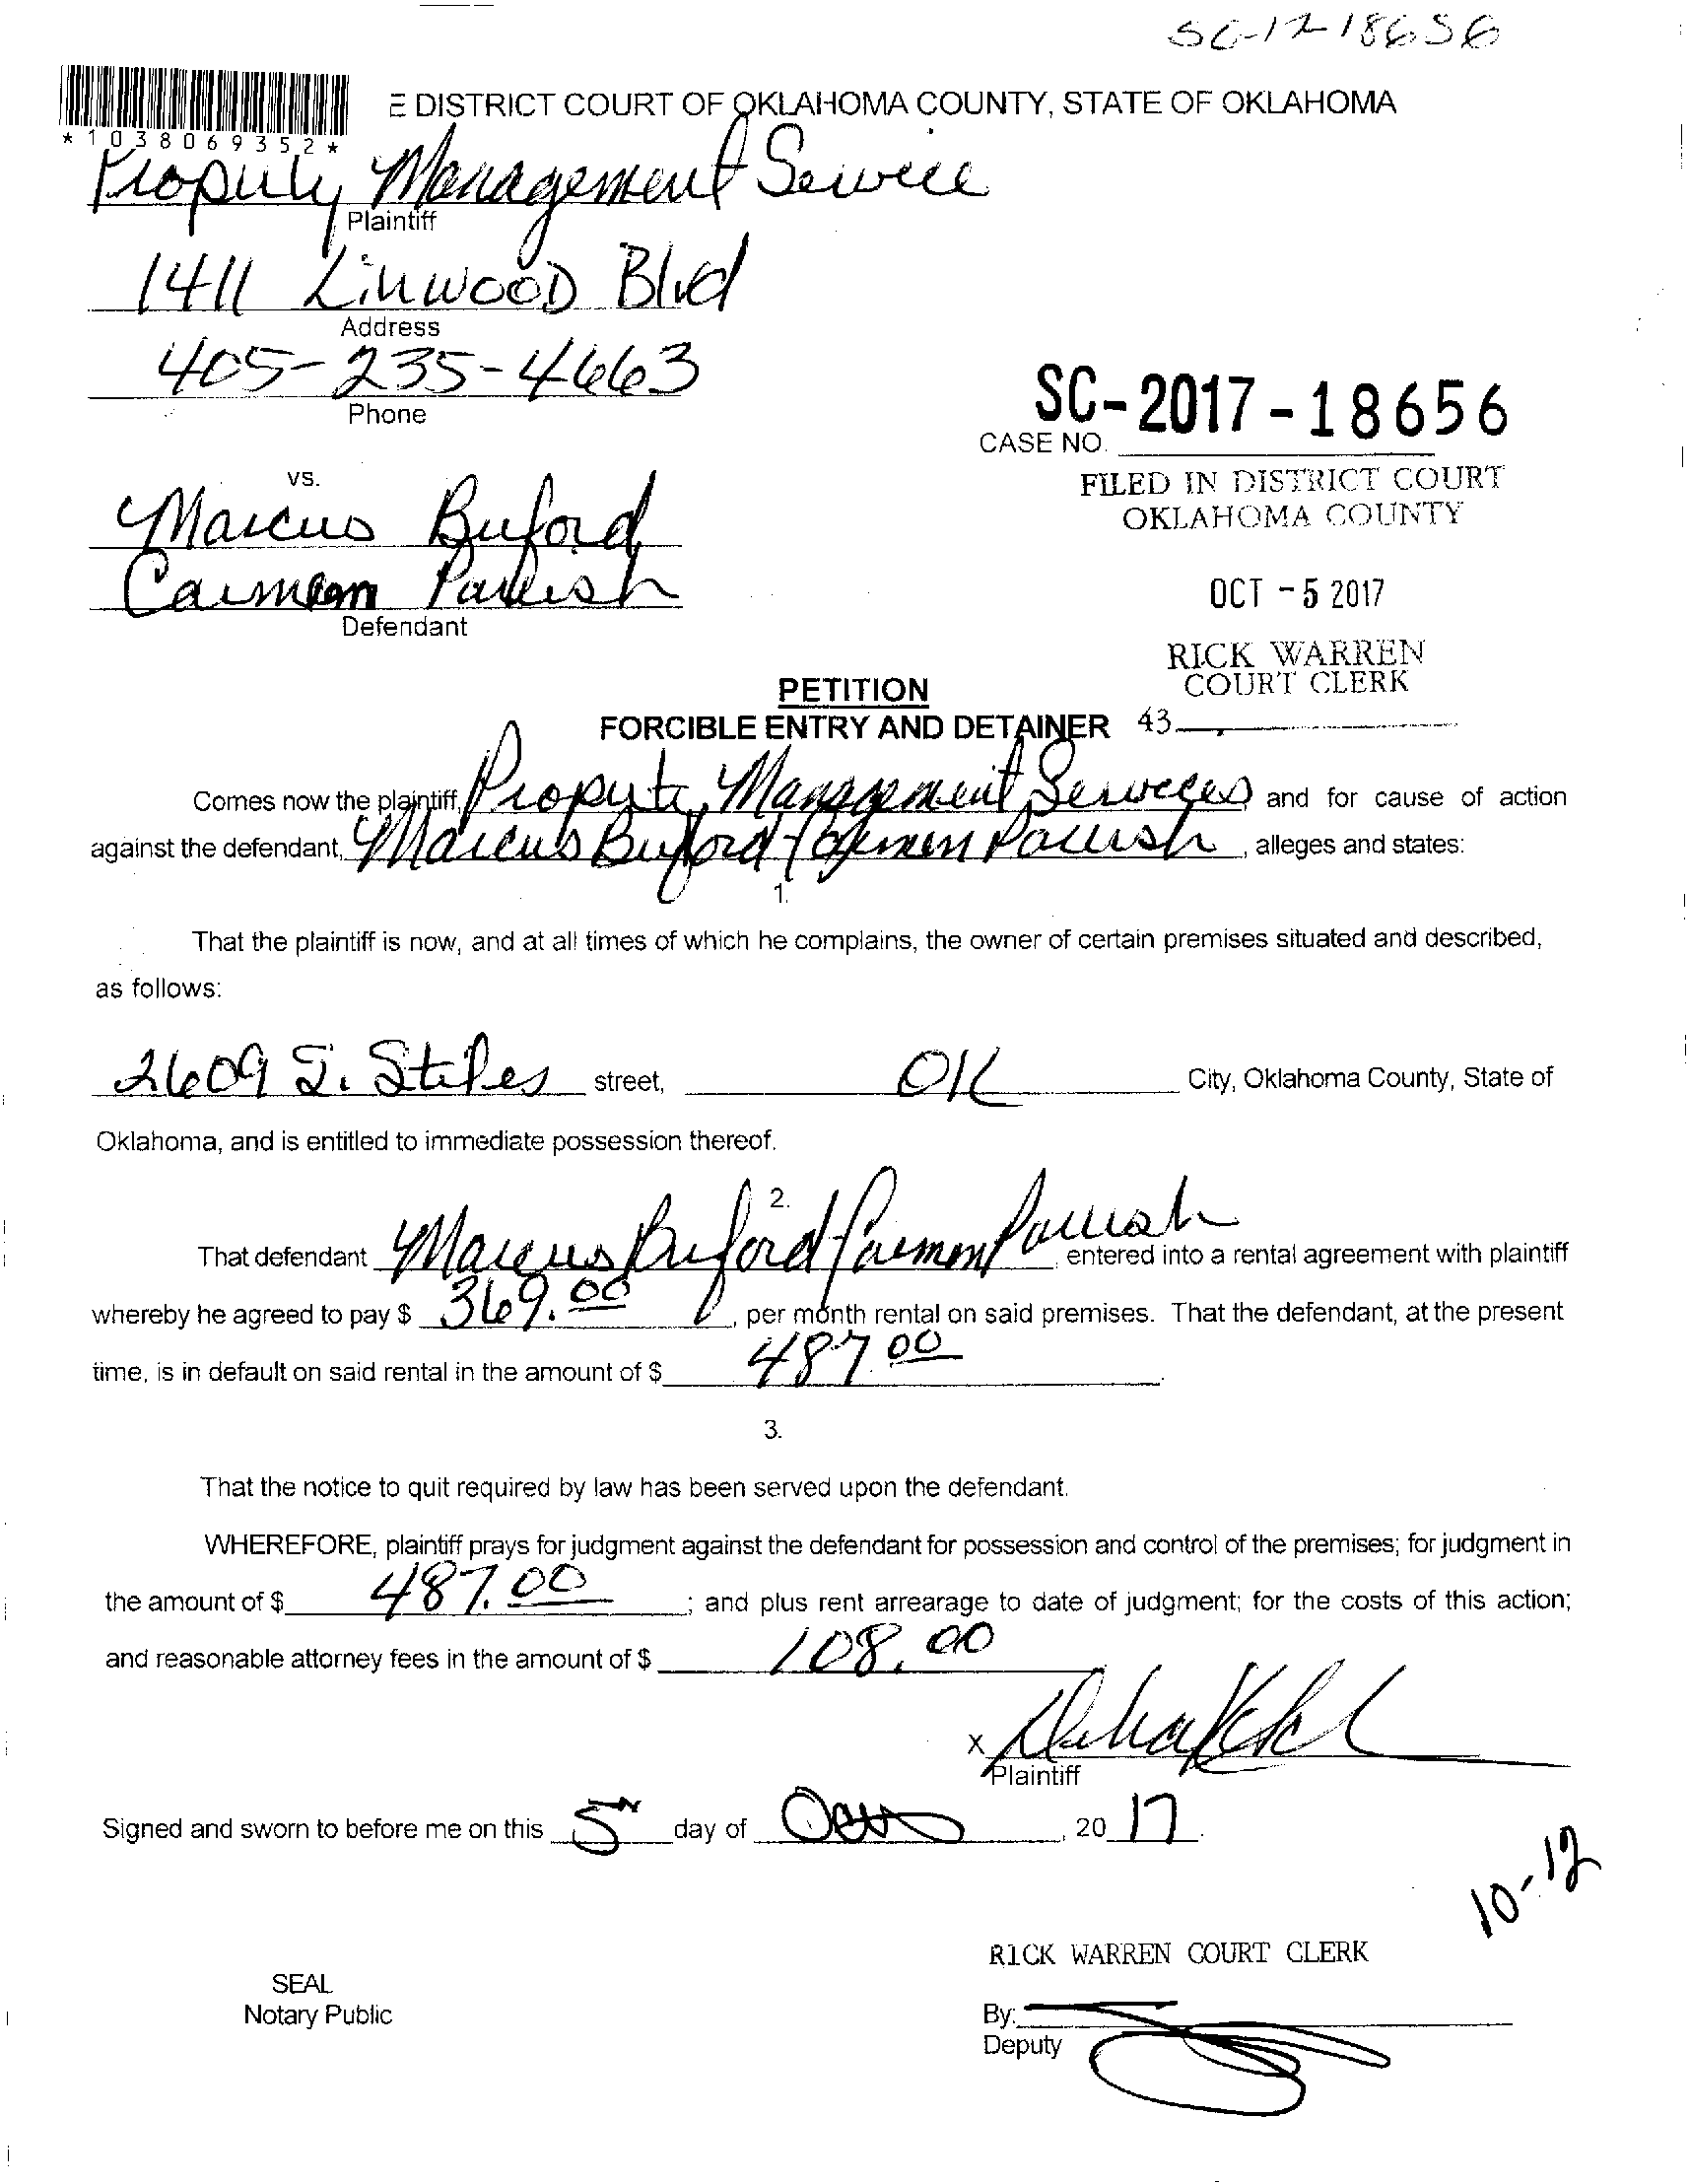 SC-17-18656
E DISTRICT COURT OF OKLAHOMA COUNTY, STATE OF OKLAHOMA
*1038069352*
Property Management Service
Plaintiff
1411 Linwood Blvd
Address
405-235-4663
Phone
SC-2017-18656
CASE NO.
vs.
FILED IN DISTRICT COURT
OKLAHOMA COUNTY
Marcus Buford
Carmen Parrish
Defendant
OCT -5 2017
RICK WARREN
COURT CLERK
PETITION
FORCIBLE ENTRY AND DETAINER
43
Comes now the plaintiff, Property Management Services and for cause of action
against the defendant, Marcus Buford + Carmen Parrish, alleges and states:
1.
That the plaintiff is now, and at all times of which he complains, the owner of certain premises situated and described,
as follows:
2609 S. Stiles street, OK City, Oklahoma County, State of
Oklahoma, and is entitled to immediate possession thereof.
2.
That defendant Marcus Buford + Carmen Parrish, entered into a rental agreement with plaintiff
whereby he agreed to pay $ 369.00, per month rental on said premises. That the defendant, at the present
time, is in default on said rental in the amount of $ 487.00.
3.
That the notice to quit required by law has been served upon the defendant.
WHEREFORE, plaintiff prays for judgment against the defendant for possession and control of the premises; for judgment in
the amount of $ 487.00; and plus rent arrearage to date of judgment; for the costs of this action;
and reasonable attorney fees in the amount of $ 108.00
X
Plaintiff
Signed and sworn to before me on this 5th day of Oct, 2017.
10-12
RICK WARREN COURT CLERK
SEAL
Notary Public
By:
Deputy